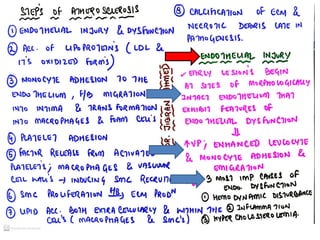 STEP'S OF ATHEROSCLEROSIS
① ENDOTHELIAL INJURY & DYSFUNCTION
② ACC. OF LIPOPROTEIN'S (LDL &
IT'S OXIDIZED FORM'S)
③ MONOCYTE ADHESION TO THE
ENDOTHELIUM, F/B MIGRATION
INTO INTIMA & TRANSFORMATION
INTO MACROPHAGES & FOAM CELL'S
④ PLATELET ADHESION
⑤ FACTOR RELEASE FROM ACTIVATED
PLATELETS; MACROPHAGES & VASCULAR
CELL WALL'S → INDUCING SMC RECRUIT
⑥ SMC PROLIFERATION & ECM PRODN
⑦ LIPID ACC. BOTH EXTRACELLULARLY & WITHIN THE
CELL'S (MACROPHAGES & SMC'S)
⑧ CALCIFICATION OF ECM &
NECROTIC DEBRIS LATE IN
PATHOGENESIS.
ENDOTHELIAL INJURY
EARLY LESIONS BEGIN
AT SITES OF MORPHOLOGICALLY
INTACT ENDOTHELIUM THAT
EXHIBIT FEATURES OF
ENDOTHELIAL DYSFUNCTION
↑VP; ENHANCED LEUCOCYTE
& MONOCYTE ADHESION &
EMIGRATION
3 MOST IMP CAUSES OF
ENDO. DYSFUNCTION
① HEMODYNAMIC DISTURBANCE
② INFLAMMATION
③ HYPERCHOLESTEROLEMIA.